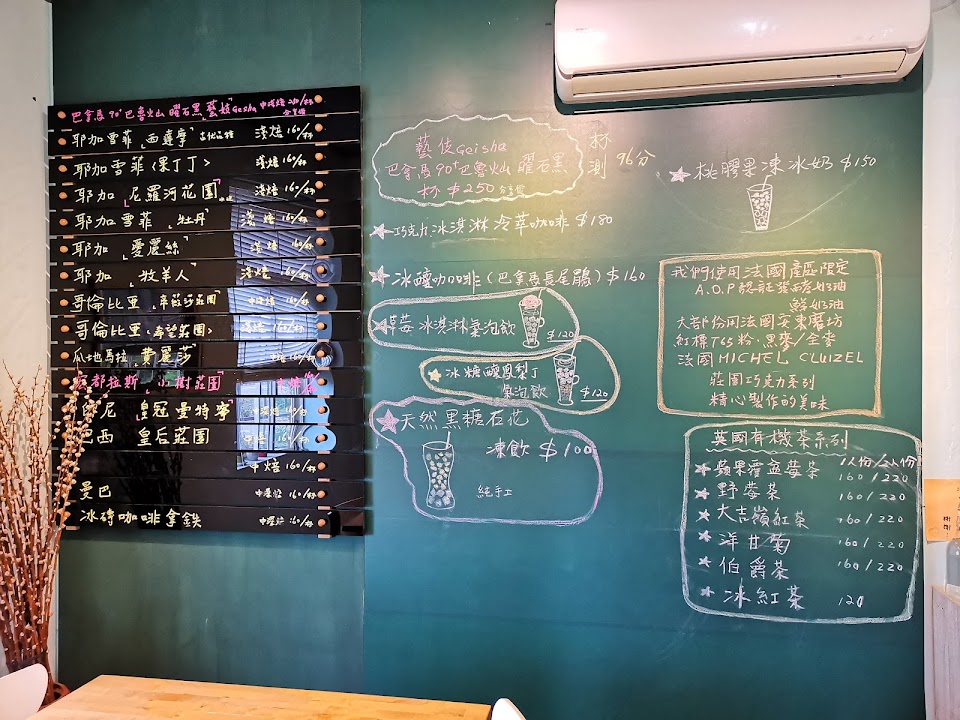 巴拿馬 90+巴魯火山 曜石黑「藝妓」Geisha 中淺焙
耶加雪菲 西達摩 淺焙 160/杯
耶加雪菲〈果丁丁〉 淺焙 160/杯
耶加「尼羅河花園」 淺焙 160/杯
耶加雪菲「牡丹」 淺焙 160/杯
耶加「愛麗絲」 淺焙 160/杯
耶加「牧羊人」 淺焙 160/杯
哥倫比亞 160/杯
哥倫比亞〈希望莊園〉 160/杯
瓜地馬拉 費麗莎 160/杯
都拉斯 小樹莊園
尼 皇冠曼特寧 160/杯
巴西 皇后莊園 中焙 160/杯
中焙 160/杯
曼巴 中深焙 160/杯
冰磚咖啡拿鐵 中深焙 160/杯
藝伎Geisha
巴拿馬90+巴魯火山 曜石黑
杯 $250
杯測 96分
巧克片冰淇淋冷萃咖啡 $180
冰釀咖啡(巴拿馬長尾鵲) $160
草莓冰淇淋氣泡飲
$120
冰糖釀鳳梨丁
氣泡飲 $120
天然黑糖石花
凍飲 $100
純手工
桃膠果凍冰奶 $150
我們使用法國產區限定
A.O.P認証發酵奶油
鮮奶油
大部份用法國麥東磨坊
紅標T65粉.黑麥/全麥
法國MICHEL CLUIZEL
莊園巧克力系列
精心製作的美味
英國有機茶系列
1人份/2人份
蘋果覆盆莓茶 160/220
野莓茶 160/220
大吉嶺紅茶 160/220
洋甘菊 160/220
伯爵茶 160/220
冰紅茶 120